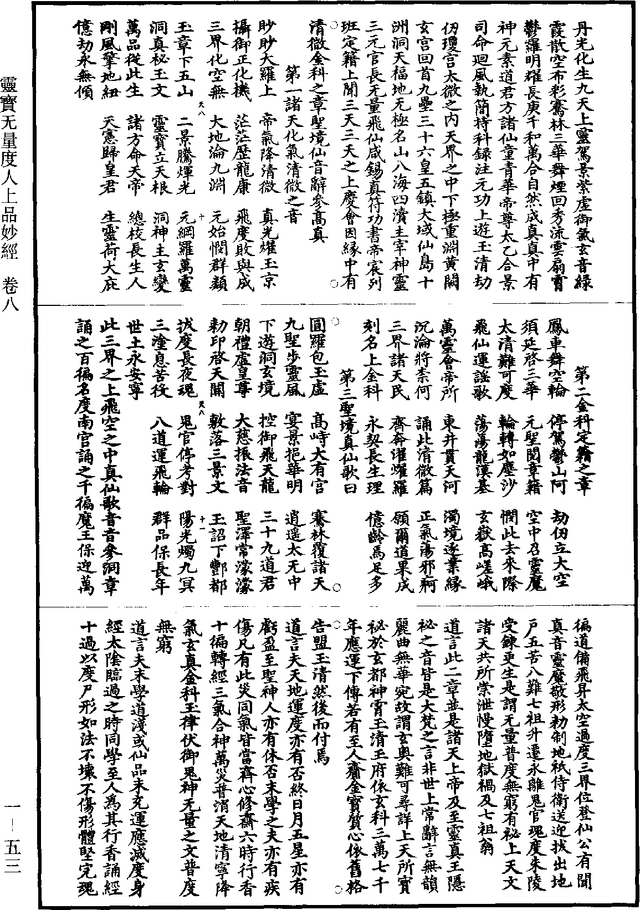 丹光化生九天上靈駕景縈虛御氣玄音綠
霞散空布彩騫林三華舞煙回秀流雲扇霄
鬱羅明耀長庚千和萬合自然成真真中有
神元素道君方諸仙童青華帝尊太乙合景
司命迴風執簡持科錄注元功上遊玉清劫
仞瓊宮太微之內天界之中下極重淵黃闕
玄宮回首九壘三十六皇五鎮大域仙島十
洲洞天福地无極名山八海四瀆主宰神靈
三元官長无量飛仙咸錫真符功書帝宸列
班定籍上聞三天三天之上慶會因緣中有
清微金科之章聖境仙音辭參高真
第一諸天化氣清微之音
眇眇大羅上 帝氣降清微 真光耀玉京
攝御正化機 茫茫歷龍康 飛度敗與成
三界化空無 大地淪九淵 元始憫群顛
玉章下五山 二景騰煇光 元綱羅萬靈
洞真祕玉文 靈寶立天根 洞神主玄變
萬品從此生 諸方命天帝 總校長生人
剛風擎地紐 天憲歸皇君 生靈荷大庇
億劫永無傾
第二金科定籍之章
鳳車舞空輪 停駕鬱山阿 劫仞立太空
須延啓三華 元聖閱章籍 空中召靈魔
太清難可度 輪轉如塵沙 憫此去來際
飛仙運謡歌 蕩蕩龍漢基 玄嶽高嵯峨
萬靈會帝所 東井貫天河 濁境逐業緣
沉淪將柰何 誦此清微篇 正氣蕩邪痾
三界諸天民 齊奔㬢曜羅 願爾道果成
刻名上金科 永契長生理 億齡爲足多
第三聖境真仙歌曰
圓羅包玉虛 高峙大有宮 騫林覆諸天
九聖步靈風 宴景挹華明 逍遥太无中
下遊洞玄境 控御飛天龍 三十九道君
朝禮虛皇尊 大慈振法音 聖澤常濛濛
勑印啓天關 敷落三景文 玉詔下酆都
拔度長夜魂 鬼官停考對 陽光燭九冥
三塗息苦役 八道運飛輪 群品保長年
世土永安寧
此三界之上飛空之中真仙歌音音參洞章
誦之百徧名度南宮誦之千徧魔王保迎萬
徧道備飛昇太空過度三界位登仙公有聞
真音靈魔敬形勑制地祇侍衛送迎拔出地
戶五苦八難七祖升遷永離鬼官魂度朱陵
受鍊更生是謂无量普度無窮有祕上天文
諸天共所崇泄慢墮地獄禍及七祖翁
道言此二章並是諸天上帝及至靈真王隱
祕之音皆是大梵之言非世上常辭言無韻
麗曲無華宛故謂玄奥難可尋詳上天所寶
祕於玄都神霄玉清王府依玄科三萬七千
年應運下傳若有至人齎金寶質心依舊格
告盟玉清然後而付焉
道言夫天地運度亦有否終日月五星亦有
虧盈至聖神人亦有休否末學之夫亦有疾
傷凡有此災同氣皆當齊心修齋六時行香
十徧轉經三氣合神萬災普消天地清寧降
氣玄真金科玉律伏御鬼神无量之文普度
無窮
道言夫末學道淺或仙品未充運應滅度身
經太陰臨過之時同學至人爲其行香誦經
十過以度尸形如法不壞不傷形體堅完魂
靈寶无量度人上品妙經 卷八
一—五三